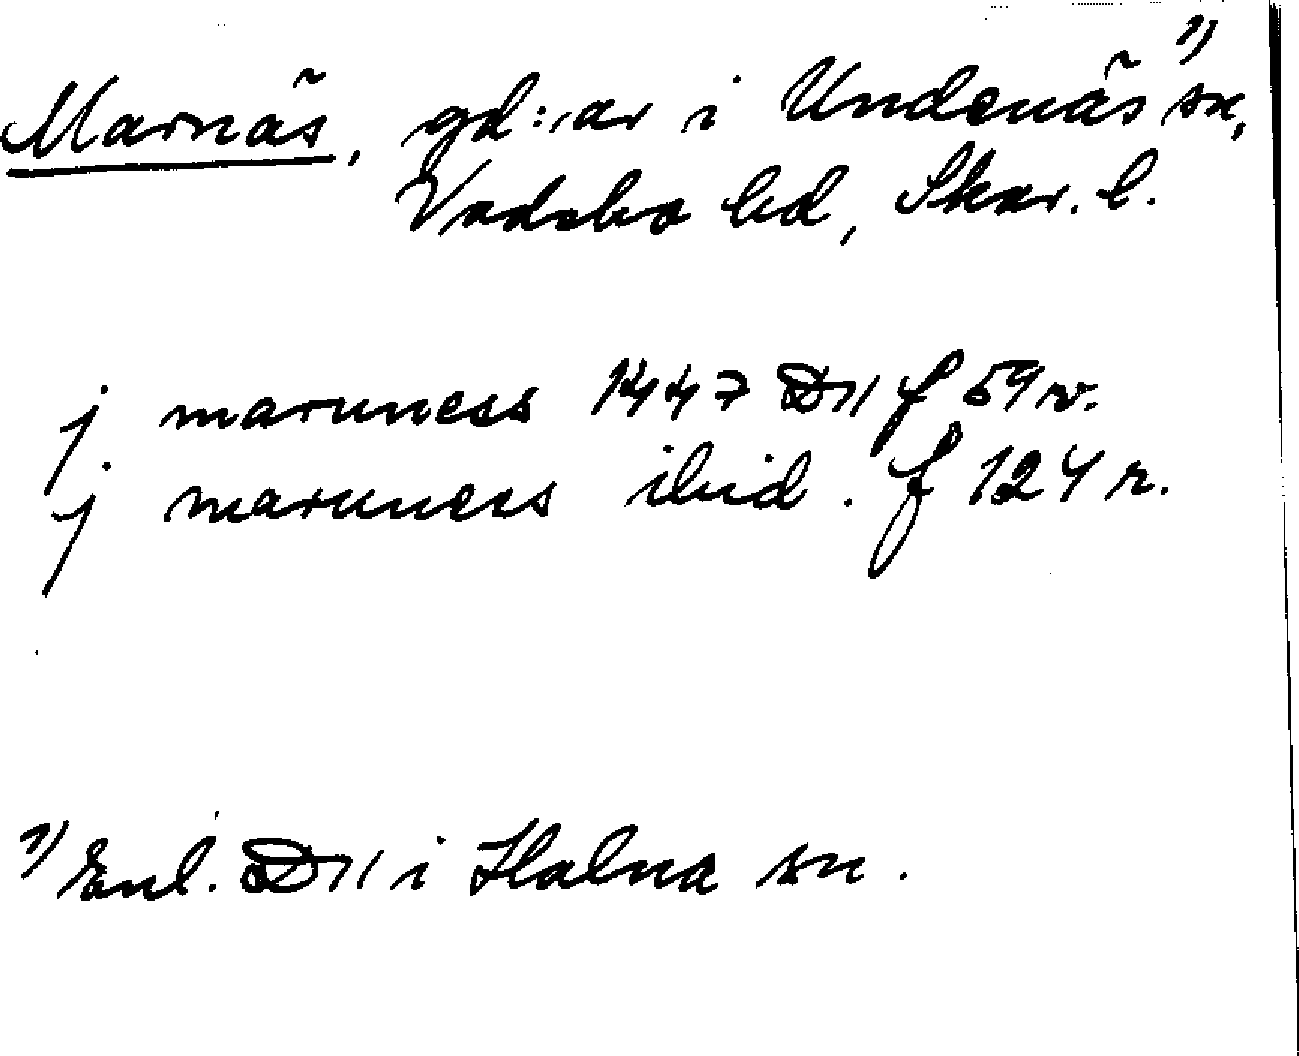 Marnäs, gd:ar i Undenäs ¹) sn,
Vadsbo hd, Skar. l.
j maruness 1447 D11 f 59 v.
j maruness ibid. f 124 r.
¹) Enl. D11 i Halna sn.